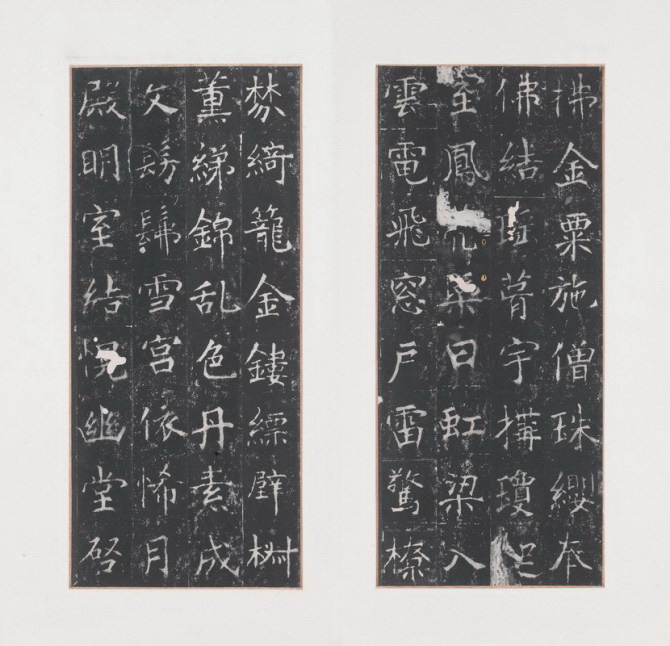 拂金粟施僧珠纓奉
佛結宇構瓊
室鳳日虹梁入
雲電飛窓戶雷驚橑
棼綺籠金鏤縹壁椒
薰綈錦乱色丹素成
文髣髴雪宮依悕月
殿明室結幌幽堂啓